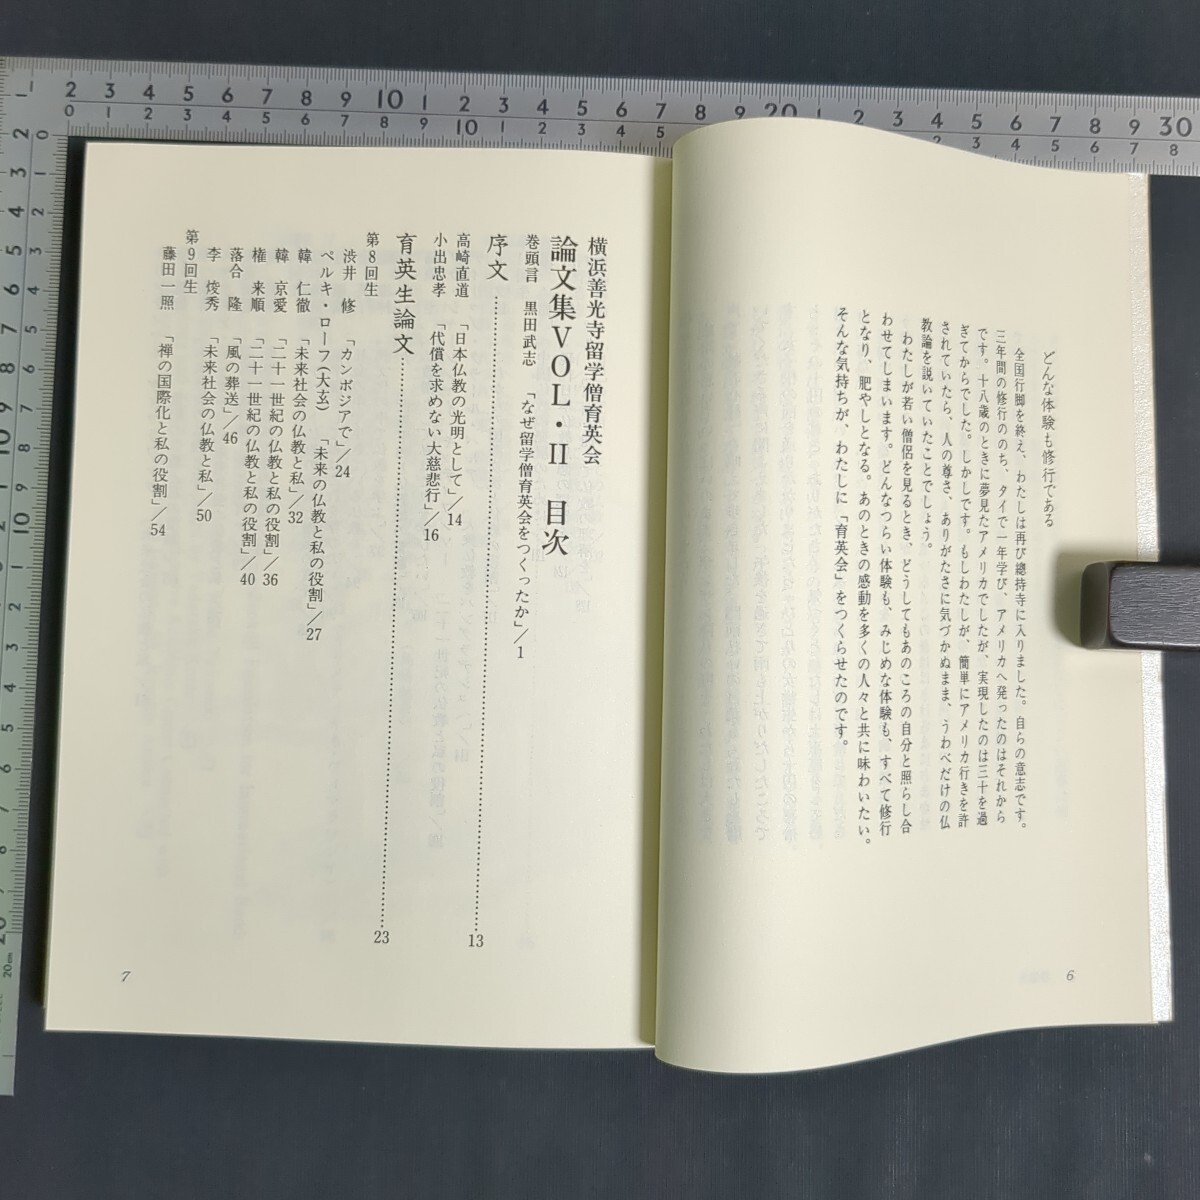 どんな体験も修行である
全国行脚を終え、わたしは再び總持寺に入りました。自らの意志です。
三年間の修行ののち、タイで一年学び、アメリカへ発ったのはそれから
です。十八歳のときに夢見たアメリカでしたが、実現したのは三十を過
ぎてからでした。しかしです。もしわたしが、簡単にアメリカ行きを許
されていたら、人の尊さ、ありがたさに気づかぬまま、うわべだけの仏
教論を説いていたことでしょう。
わたしが若い僧侶を見るとき、どうしてもあのころの自分と照らし合
わせてしまいます。どんなつらい体験も、みじめな体験も、すべて修行
となり、肥やしとなる。あのときの感動を多くの人々と共に味わいたい。
そんな気持ちが、わたしに「育英会」をつくらせたのです。
6
横浜善光寺留学僧育英会
論文集VOL・II 目次
巻頭言 黒田武志 「なぜ留学僧育英会をつくったか」/1
序文……………13
高崎直道 「日本仏教の光明として」/14
小出忠孝 「代償を求めない大慈悲行」/16
育英生論文……………23
第8回生
渋井 修 「カンボジアで」/24
ペルキ・ローフ(大玄) 「未来の仏教と私の役割」/27
韓 仁徹 「未来社会の仏教と私」/32
韓 京愛 「二十一世紀の仏教と私の役割」/36
権 来順 「二十一世紀の仏教と私の役割」/40
落合 隆 「風の葬送」/46
李 焌秀 「未来社会の仏教と私」/50
第9回生
藤田一照 「禅の国際化と私の役割」/54
7
2 3 4 5 6 7 8 9 10 1 2 3 4 5 6 7 8 9 20 1 2 3 4 5 6 7 8 9 30